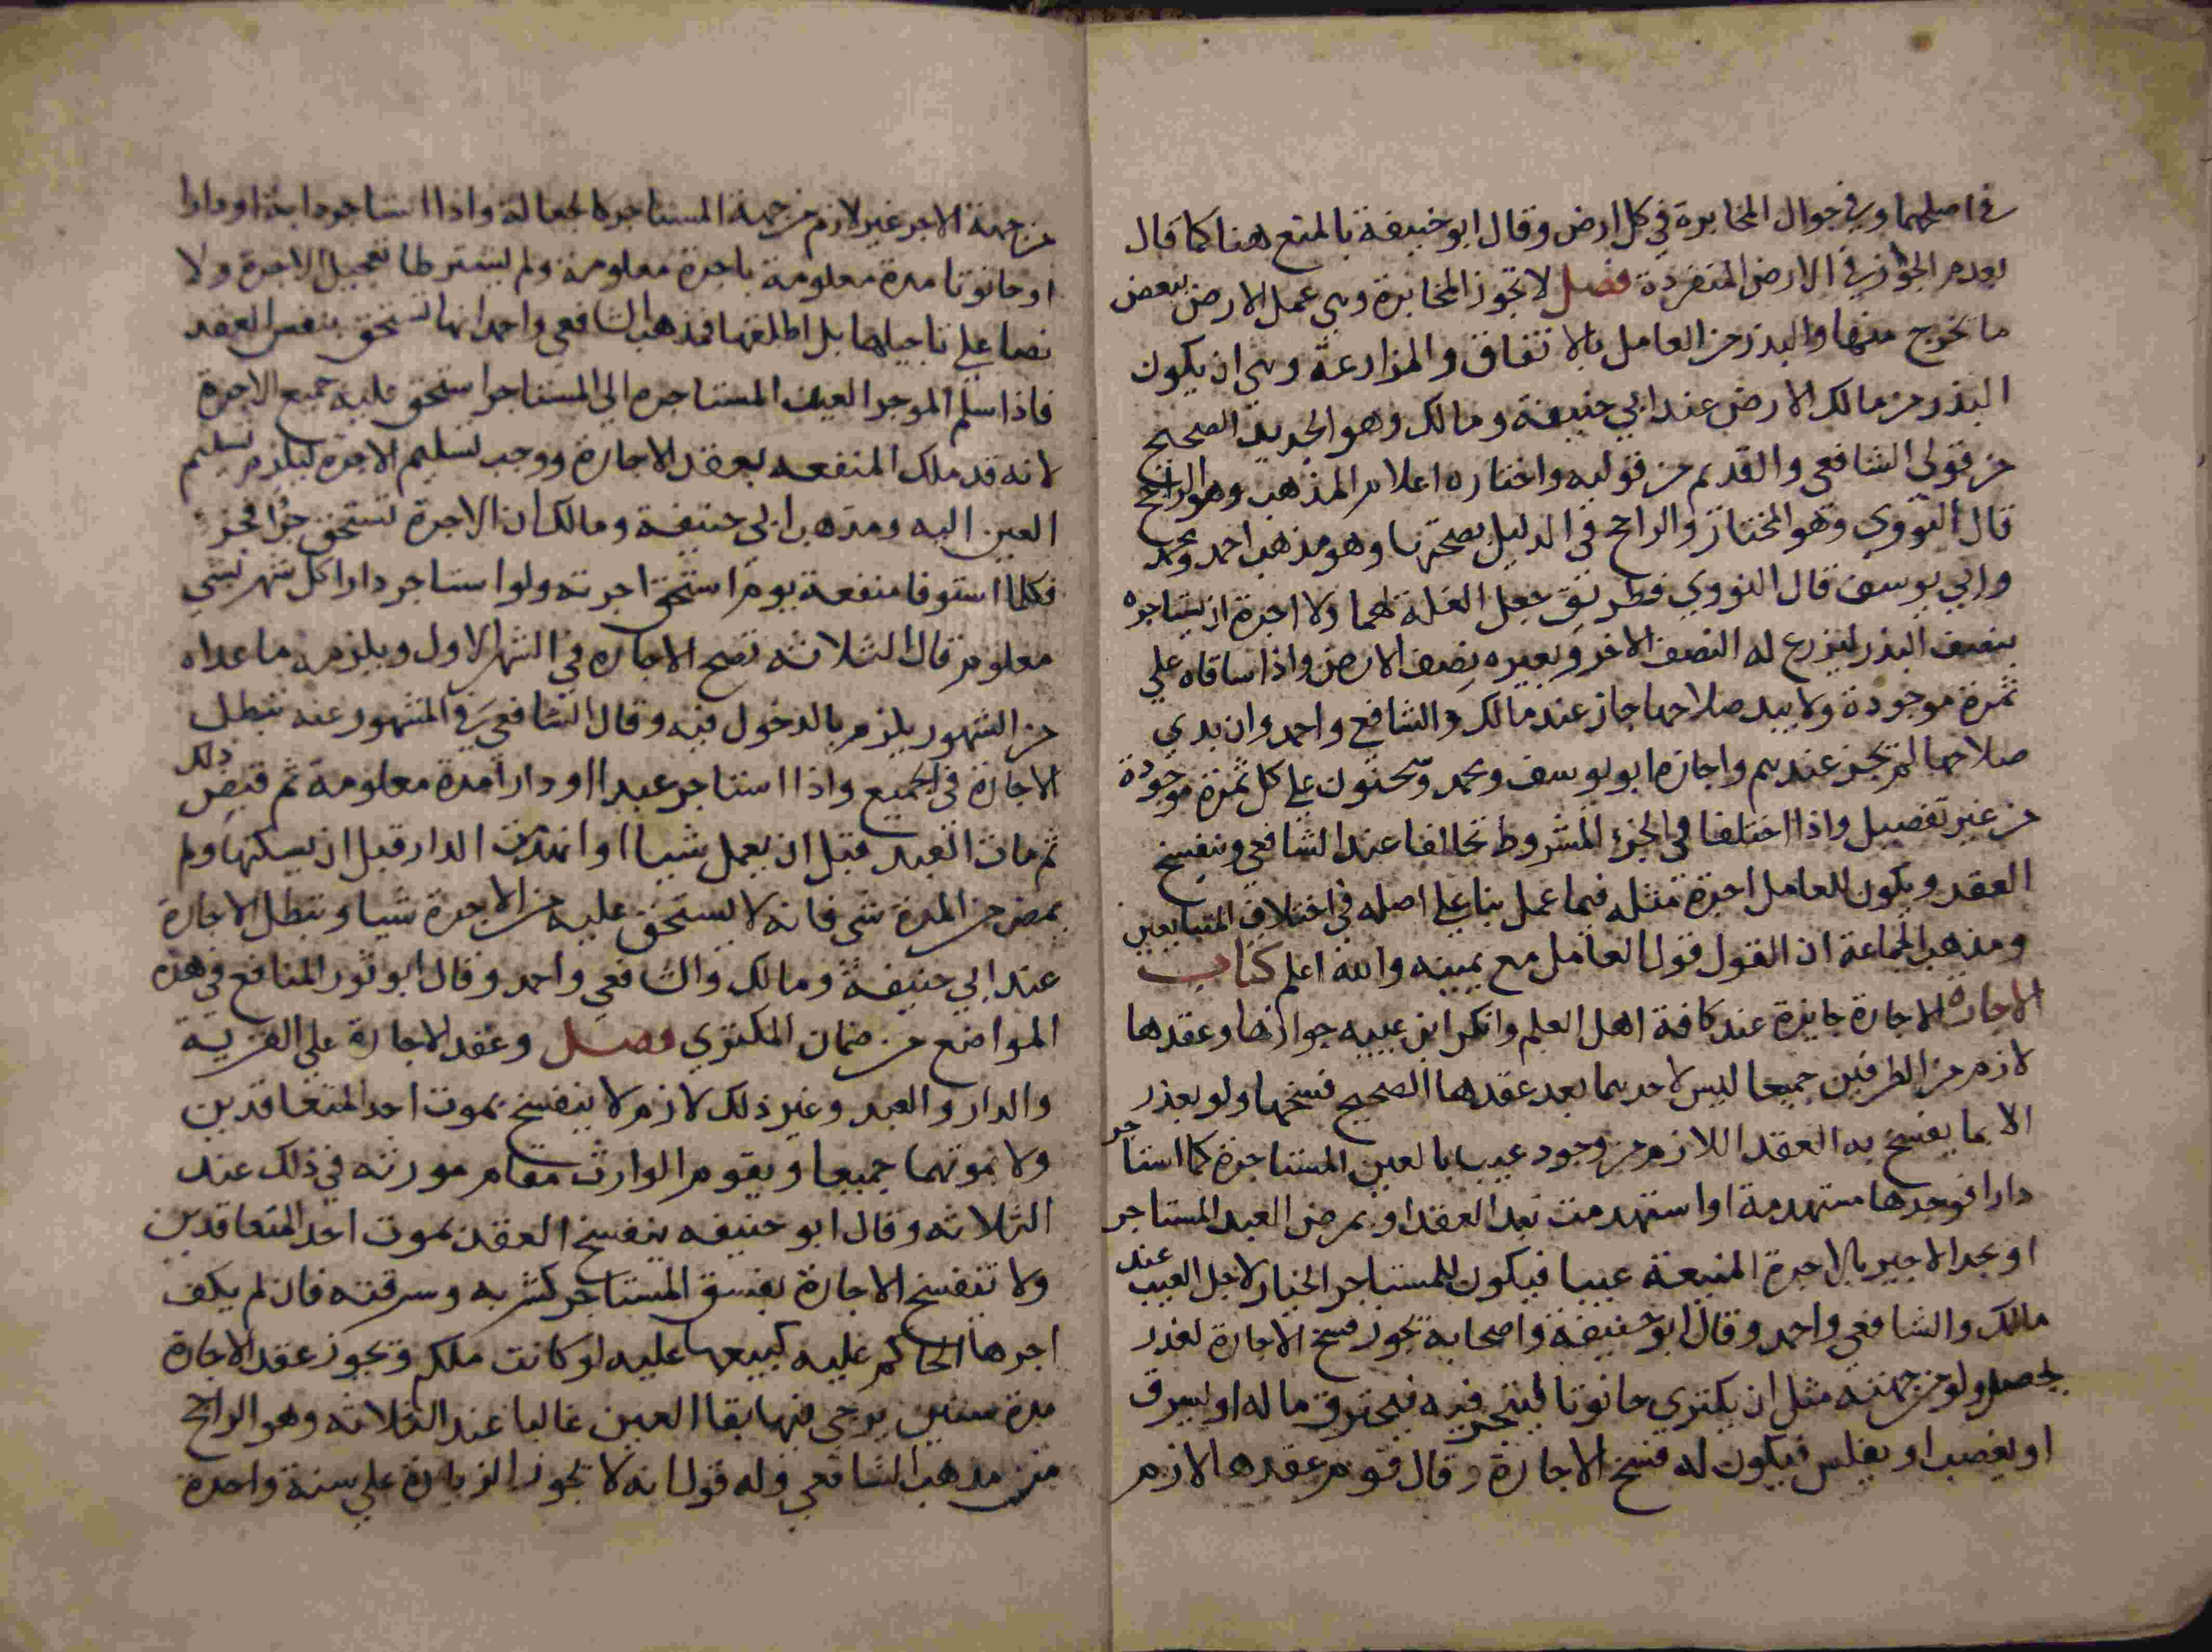 في اصلهما وفي جوال المخابرة في كل ارض وقال ابو حنيفة بالمنع هنا كما قال
بعدم الجواز في الارض المنفردة فصل لا تجوز المخابرة وهي عمل الارض ببعض
ما يخرج منها والبذر من العامل بالاتفاق والمزارعة وهي ان يكون
البذر من مالك الارض عند ابي حنيفة ومالك وهو الجديد الصحيح
من قولي الشافعي والقديم من قوليه واختاره اعلام المذهب وهو الراجح
قال النووي وهو المختار والراجح في الدليل بصحتها وهو مذهب احمد ومحمد
وابي يوسف قال النووي فطريق جعل الغلة لهما ولا اجرة ان يستاجره
بنصف البذر ليزرع له النصف الاخر ويعيره نصف الارض واذا ساقاه على
ثمرة موجودة ولا يبد صلاحها جاز عند مالك والشافعي واحمد وان بدى
صلاحها لم تجز عندهم واجازه ابو يوسف ومحمد وسحنون على كل ثمرة موجودة
من غير تفصيل واذا اختلفا في الجزء المشروط تحالفا عند الشافعي وينفسخ
العقد ويكون للعامل اجرة مثله فيما عمل بنا على اصله في اختلاف المتبايعين
ومذهب الجماعة ان القول قول العامل مع يمينه والله اعلم كتاب
الاجارة الاجارة جايزة عند كافة اهل العلم وانكر ابن عيينه جوازها وعقدها
لازم من الطرفين جميعا ليس لاحدهما بعد عقدها الصحيح فسخها ولو بعذر
الا بما يفسخ به العقد اللازم من وجود عيب بالعين المستاجرة كما استاجر
دارا فوجدها متهدمة او استهدمت بعد العقد او يمرض العبد المستاجر
او يجد الاجير بالاجرة المنيعة عيبا فيكون للمستاجر الخيار لاجل العيب عند
مالك والشافعي واحمد وقال ابو حنيفة واصحابه يجوز فسخ الاجارة لعذر
يحصل ولو من جهته مثل ان يكتري حانوتا ليتجر فيه فيحترق ماله او يسرق
او يغصب او يفلس فيكون له فسخ الاجارة وقال قوم عقدها لازم
من جهة الاجر غير لازم من جهة المستاجر كالجعالة واذا استاجر دابة او دارا
او حانوتا مدة معلومة باجرة معلومة ولم يشترطا تعجيل الاجرة ولا
نصا على تاجيلها بل اطلقها فمذهب الشافعي واحمد انها تستحق بنفس العقد
فاذا سلم الموجر العين المستاجره الى المستاجر استحق عليه جميع الاجرة
لانه قد ملك المنفعه بعقد الاجارة ووجب تسليم الاجرة ليلزم تسليم
العين اليه ومذهب ابي حنيفة ومالك ان الاجرة تستحق جزا فجز
فكلما استوفا منفعة يوم استحق اجرته ولو استاجر دارا كل شهر بشي
معلوم قال الثلاثه تصح الاجاره في الشهر الاول ويلزمه ما عداه
من الشهور يلزم بالدخول فيه وقال الشافعي في المشهور عنه تبطل
الاجازة في الجميع واذا استاجر عبدا او دارا مدة معلومة ثم قبض ذلك
ثم مات العبد قبل ان يعمل شيا او انهدمت الدار قبل ان يسكنها ولم
يمض من المدة شي فانه لا يستحق عليه من الاجرة شيا وتبطل الاجارة
عند ابي حنيفة ومالك والشافعي واحمد وقال ابو ثور المنافع في هذه
المواضع من ضمان المكتري فصل وعقد الاجارة على القرية
والدار والعبد وغير ذلك لازم لا ينفسخ بموت احد المتعاقدين
ولا بموتهما جميعا ويقوم الوارث مقام مورثه في ذلك عند
الثلاثه وقال ابو حنيفه ينفسخ العقد بموت احد المتعاقدين
ولا تنفسخ الاجارة بفسق المستاجر كشربه وسرقته فان لم يكف
اجرها الحاكم عليه كبيعها عليه لو كانت ملكه وتجوز عقد الاجارة
مدة سنين يرجى فيها بقا العين غالبا عند الثلاثه وهو الراجح
من مذهب الشافعي وله قول انه لا تجوز الزيادة على سنة واحدة